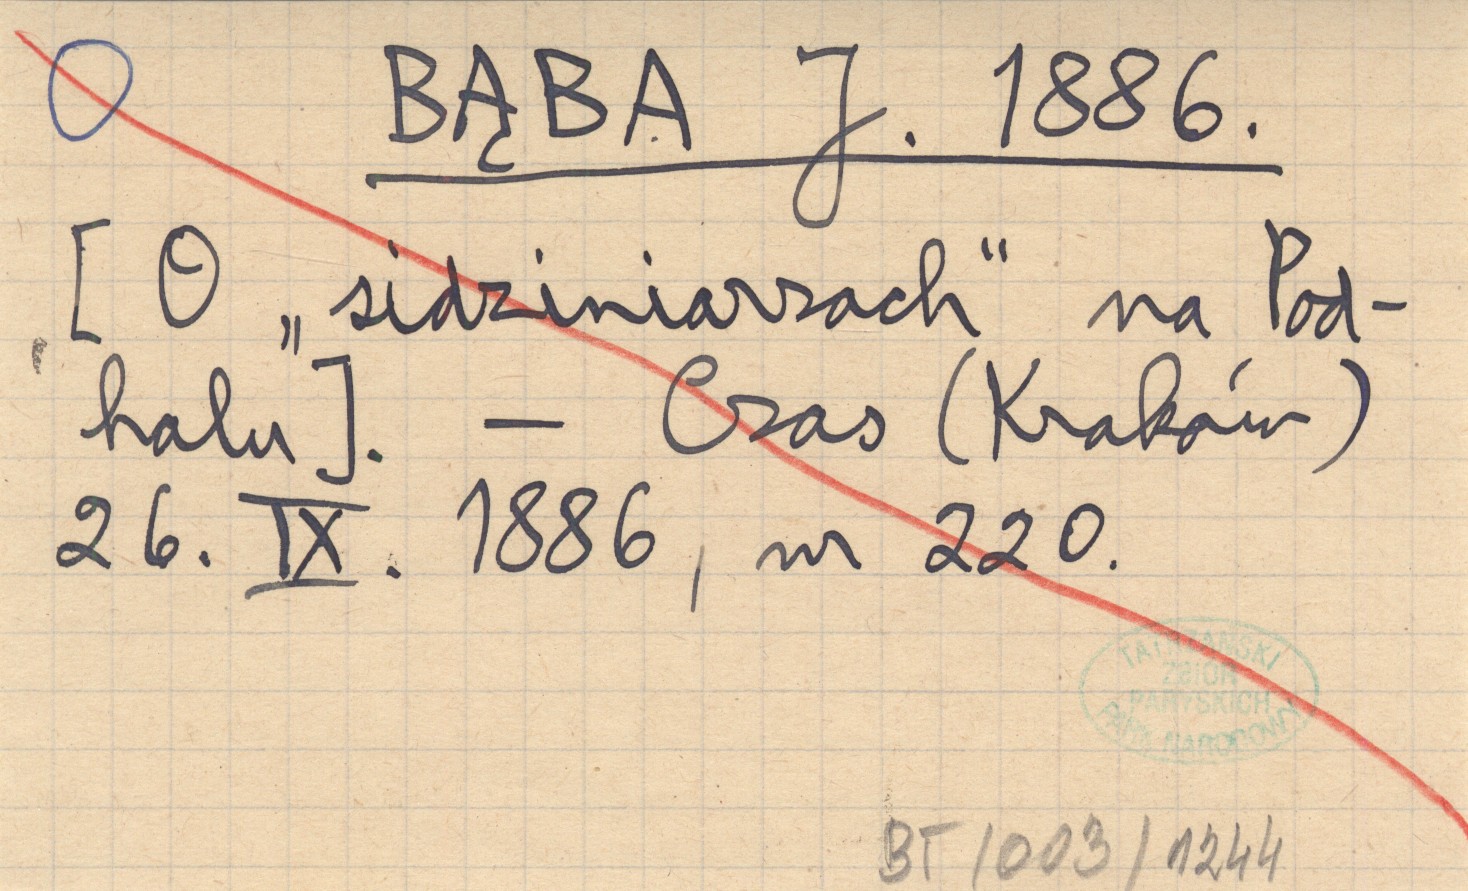 BĄBA J. 1886.
[O „sidziniarzach“ na Pod-
halu]. — Czas (Kraków)
26. IX. 1886, nr 220.
TATRZAŃSKI
ZBIÓR
PARYSKICH
PARK NARODOWY
BT/003/1244